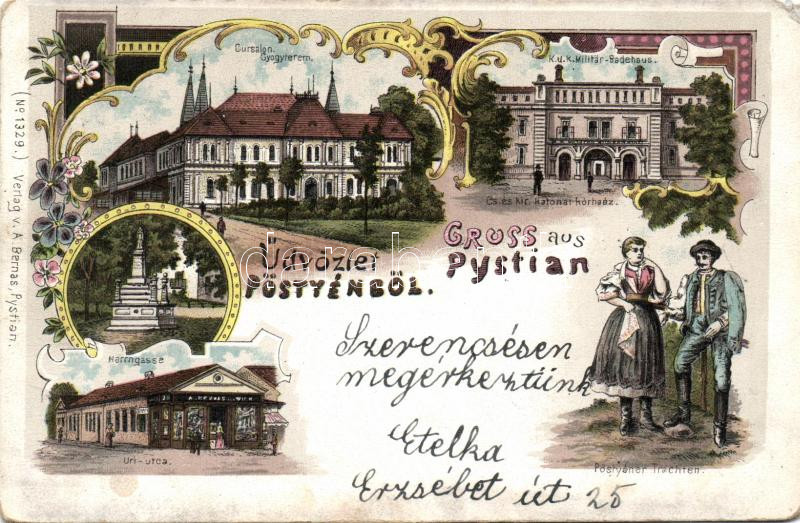 Cursalon.
Gyogyterem.
K.u.K. Militär-Badehaus.
Cs. és Kir. Katonai kórház.
Üdvözlet
Pöstyénből.
Gruss aus
Pystian
darabanth
Szerencsésen
megérkeztünk
Etelka
Erzsébet út 25
Herrngasse
A. BERNAS
Uri-utca.
Pöstyéner Trachten.
(No. 1329.) Verlag v. A. Bernas, Pystian.